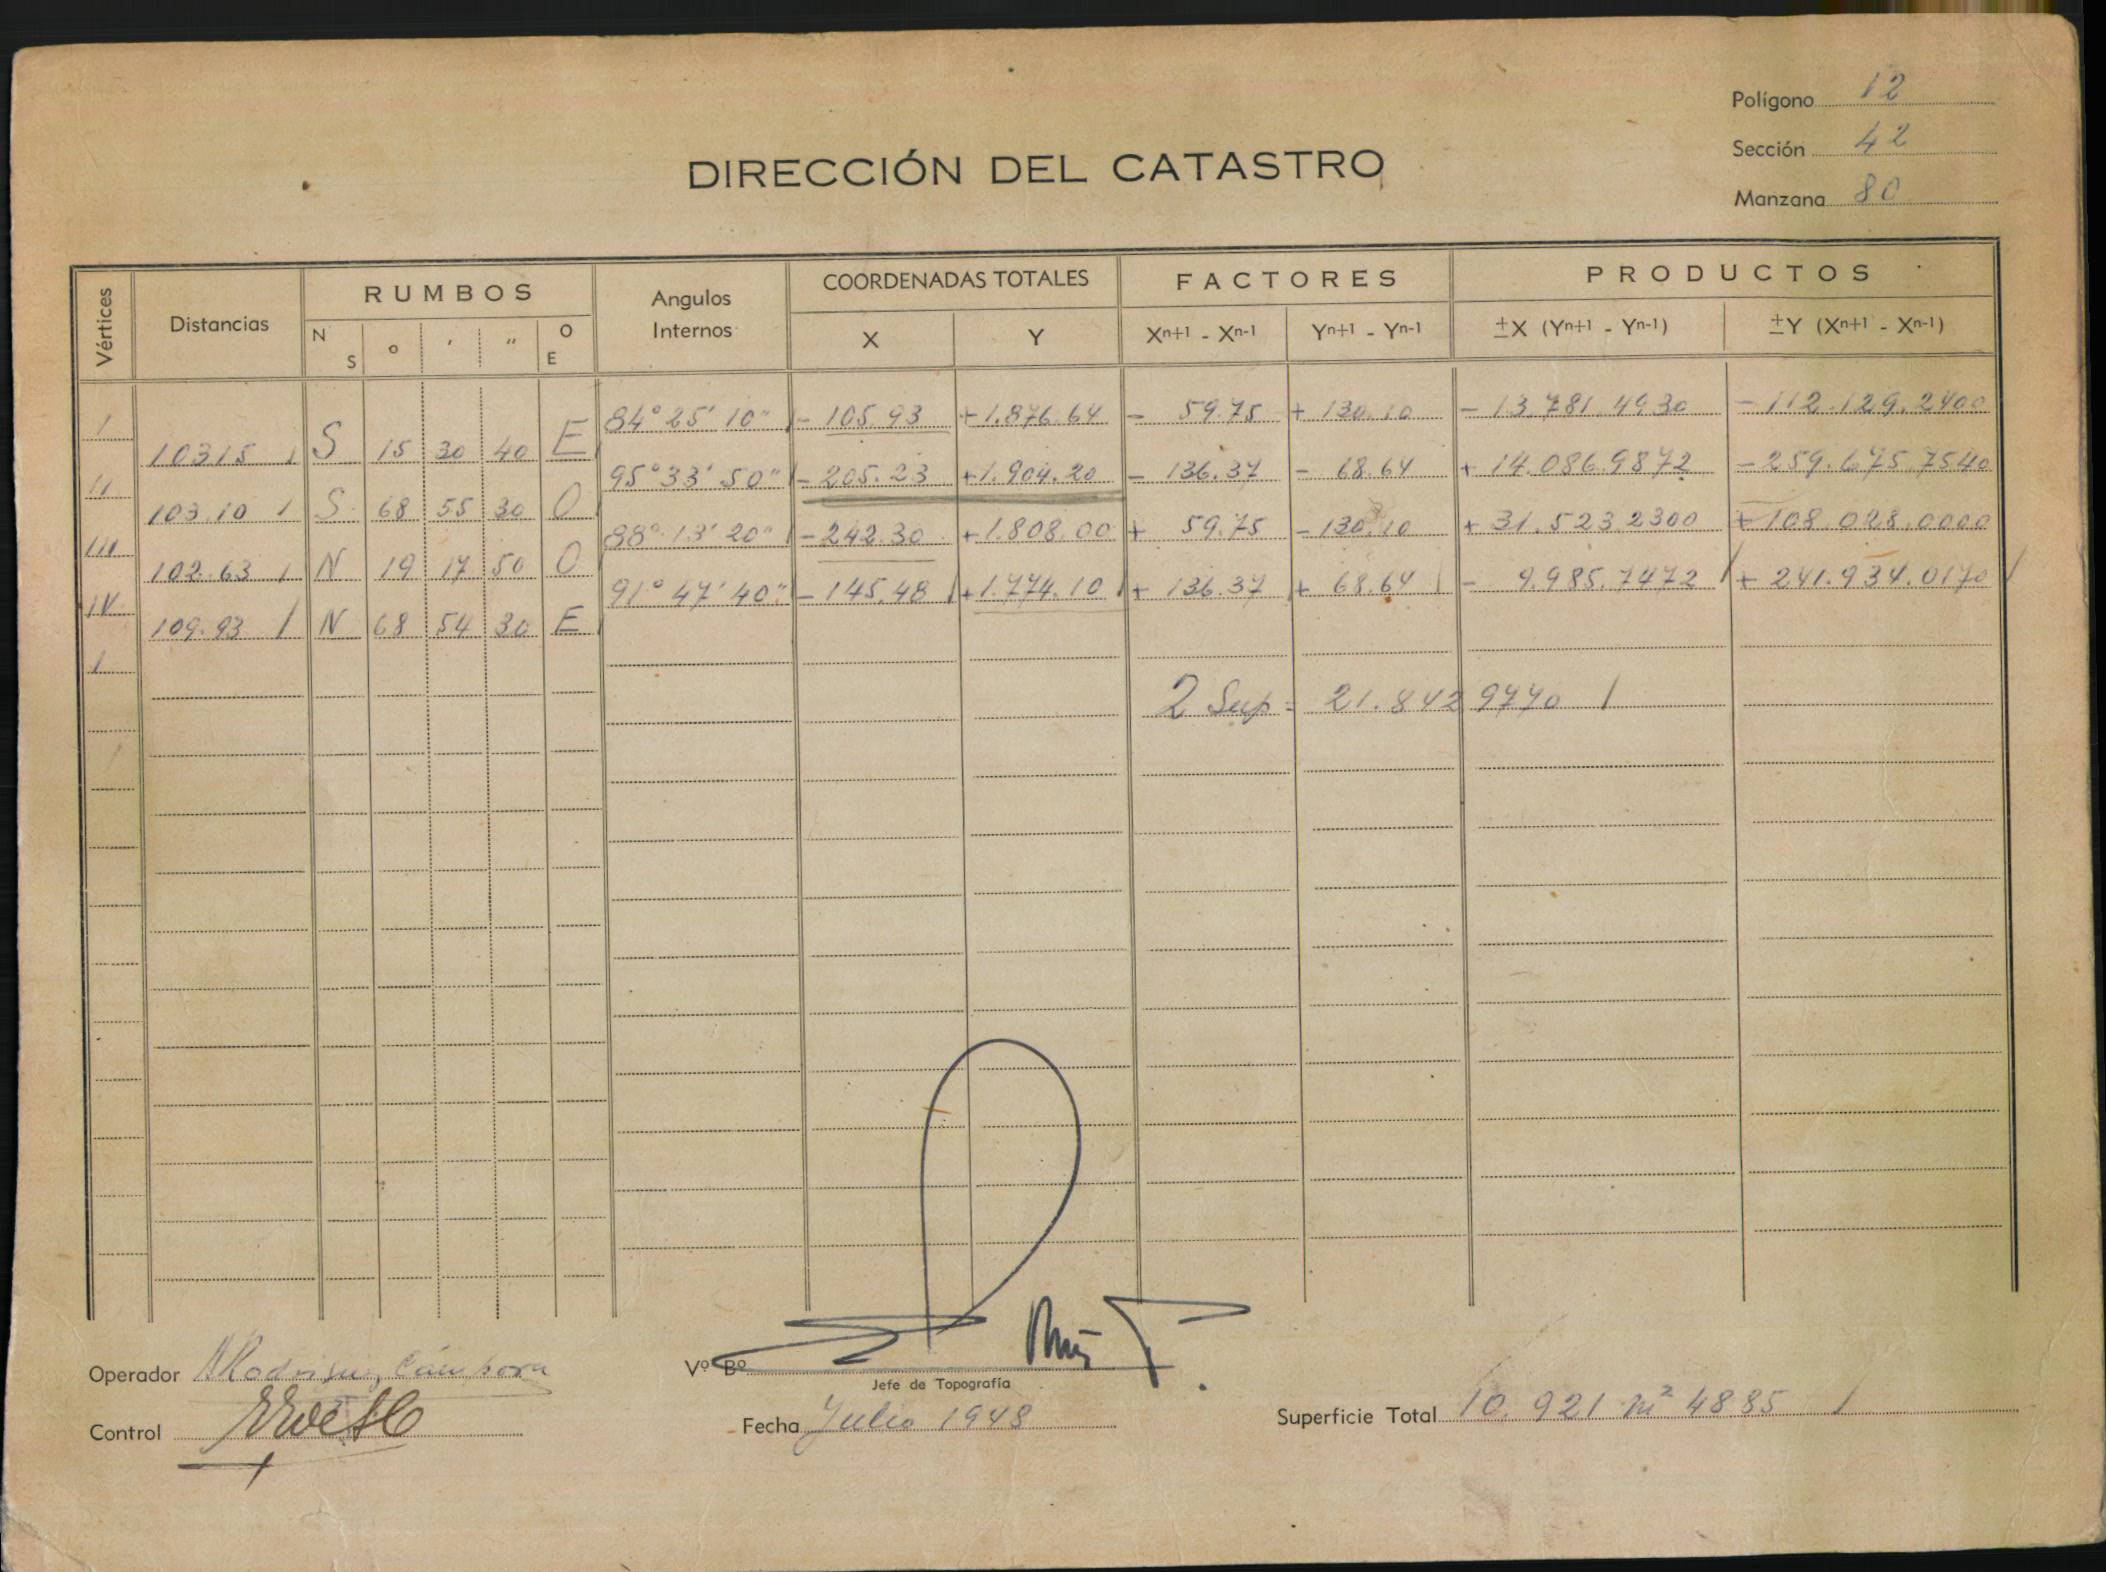 Polígono 12
Sección 42
Manzana 80
DIRECCIÓN DEL CATASTRO
Vértices Distancias RUMBOS Angulos Internos COORDENADAS TOTALES FACTORES PRODUCTOS
N S o ' " O E X Y Xn+1 - Xn-1 Yn+1 - Yn-1 ±X (Yn+1 - Yn-1) ±Y (Xn+1 - Xn-1)
I 84° 25' 10" - 105.93 + 1.876.64 - 59.75 + 130.10 - 13.781.4930 - 112.129.2400
103.15 S 15 30 40 E
II 95° 33' 50" - 205.23 + 1.904.20 - 136.37 - 68.64 + 14.086.9872 - 259.675.7540
103.10 S 68 55 30 O
III 88° 13' 20" - 242.30 + 1.808.00 + 59.75 - 130.10 + 31.523.2300 + 108.028.0000
102.63 N 19 17 50 O
IV 91° 47' 40" - 145.48 + 1.774.10 + 136.37 + 68.64 - 9.985.7472 + 241.934.0170
109.93 N 68 54 30 E
I
2 Sup = 21.842 9770
Operador
Vº Bº
Jefe de Topografía
Control
Fecha Julio 1948
Superficie Total 10.921 m² 4885